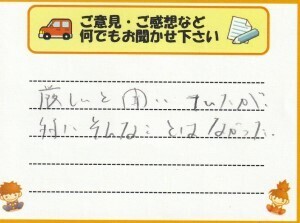 ご意見・ご感想など
何でもお聞かせ下さい
厳しいと聞いていたが
特にそんなことはなかった。